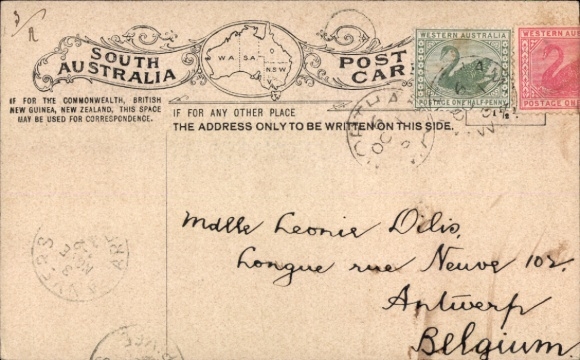 SOUTH AUSTRALIA
W.A. S.A. Q N.S.W
POST CAR
WESTERN AUSTRALIA
POSTAGE ONE HALF-PENNY
WESTERN AUSTRA
POSTAGE ON
IF FOR THE COMMONWEALTH, BRITISH
NEW GUINEA, NEW ZEALAND, THIS SPACE
MAY BE USED FOR CORRESPONDENCE.
IF FOR ANY OTHER PLACE
THE ADDRESS ONLY TO BE WRITTEN ON THIS SIDE.
Mdlle Leonie Dilis,
Longue rue Neuve 102.
Antwerp
Belgium
ANVERS